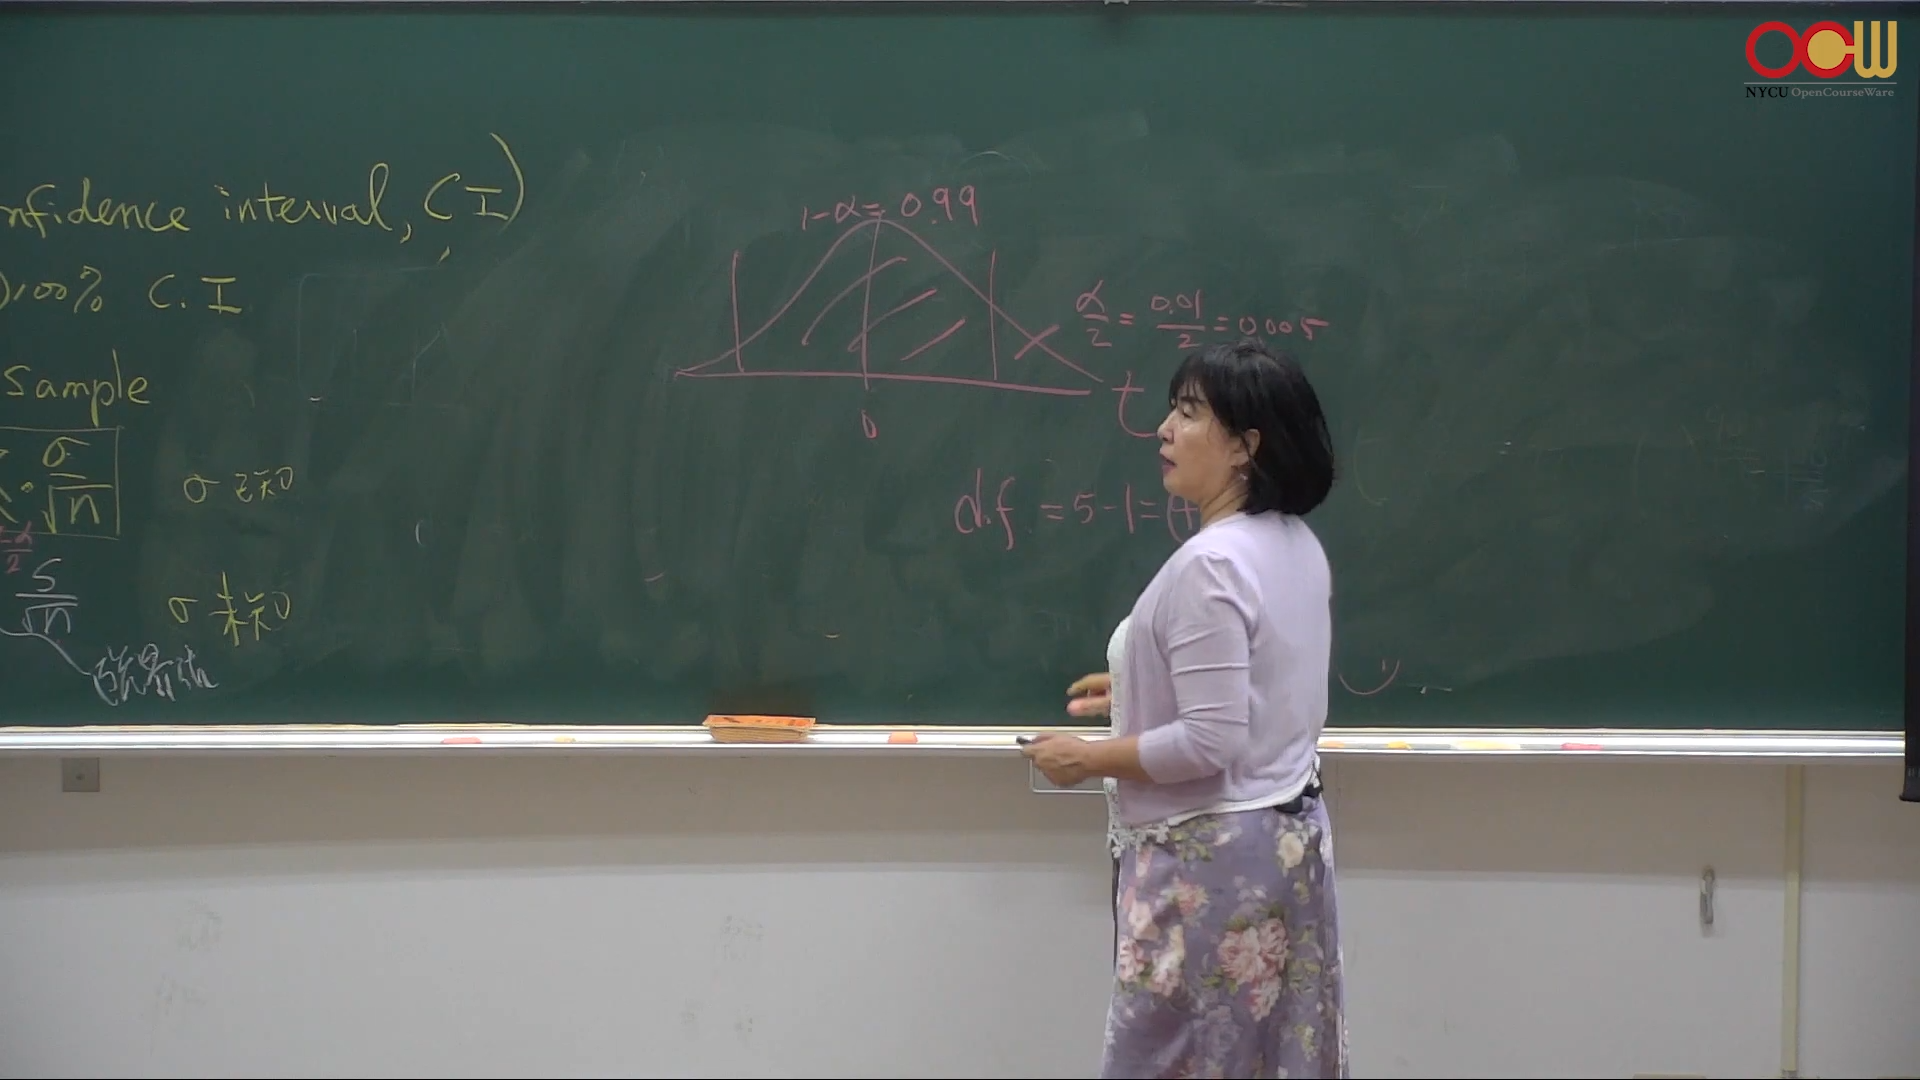 OCW
NYCU OpenCourseWare
nfidence interval, C I)
)100% C.I
sample
σ
√n
σ 已知
-α
2
S
√n
σ 未知
臨界值
1-α = 0.99
α/2 = 0.01/2 = 0.005
0
t
d.f = 5-1=